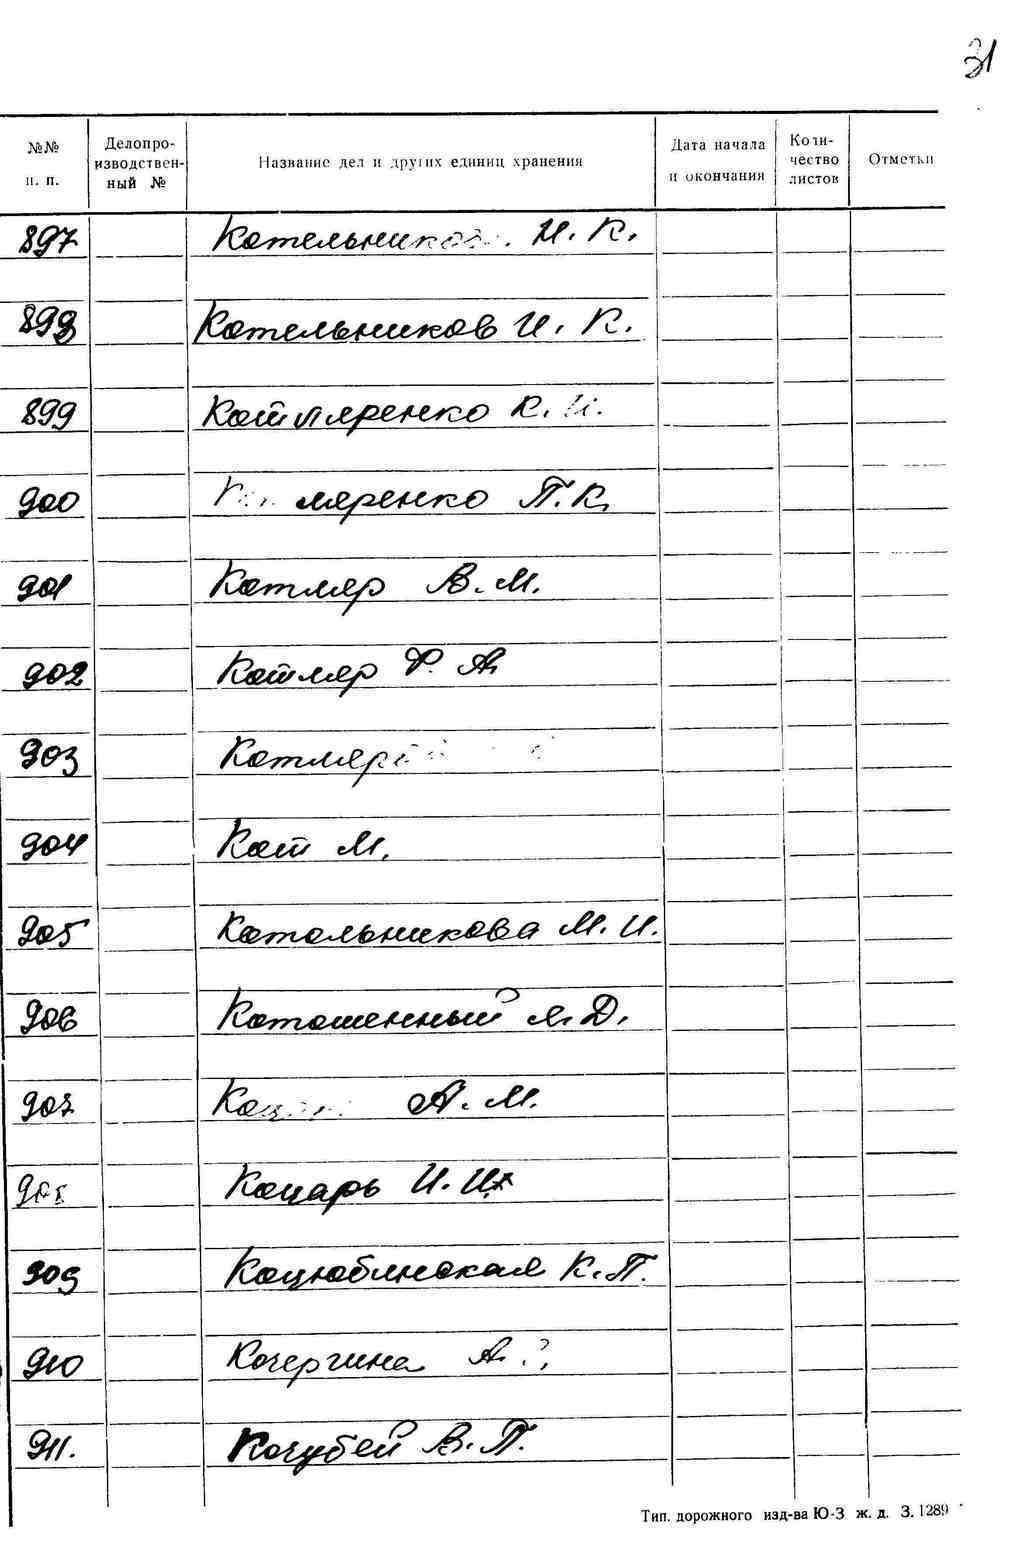 31
№№ п. п. Делопроизводствен-ный № Название дел и других единиц хранения Дата начала и окончания Количество листов Отметки
897 Котельников И. К.
898 Котельников И. К.
899 Котляренко К. И.
900 Котляренко П. К.
901 Котляр В. М.
902 Котляр Ф. А.
903 Котляр
904 Кот М.
905 Котольникова М. И.
906 Котошенный Д.
907 А. М.
908 Коцарь И. И.
909 Коцюбинская К. П.
910 Кочергина А.
911. Кочубей В. П.
Тип. дорожного изд-ва Ю-З ж. д. З. 1289